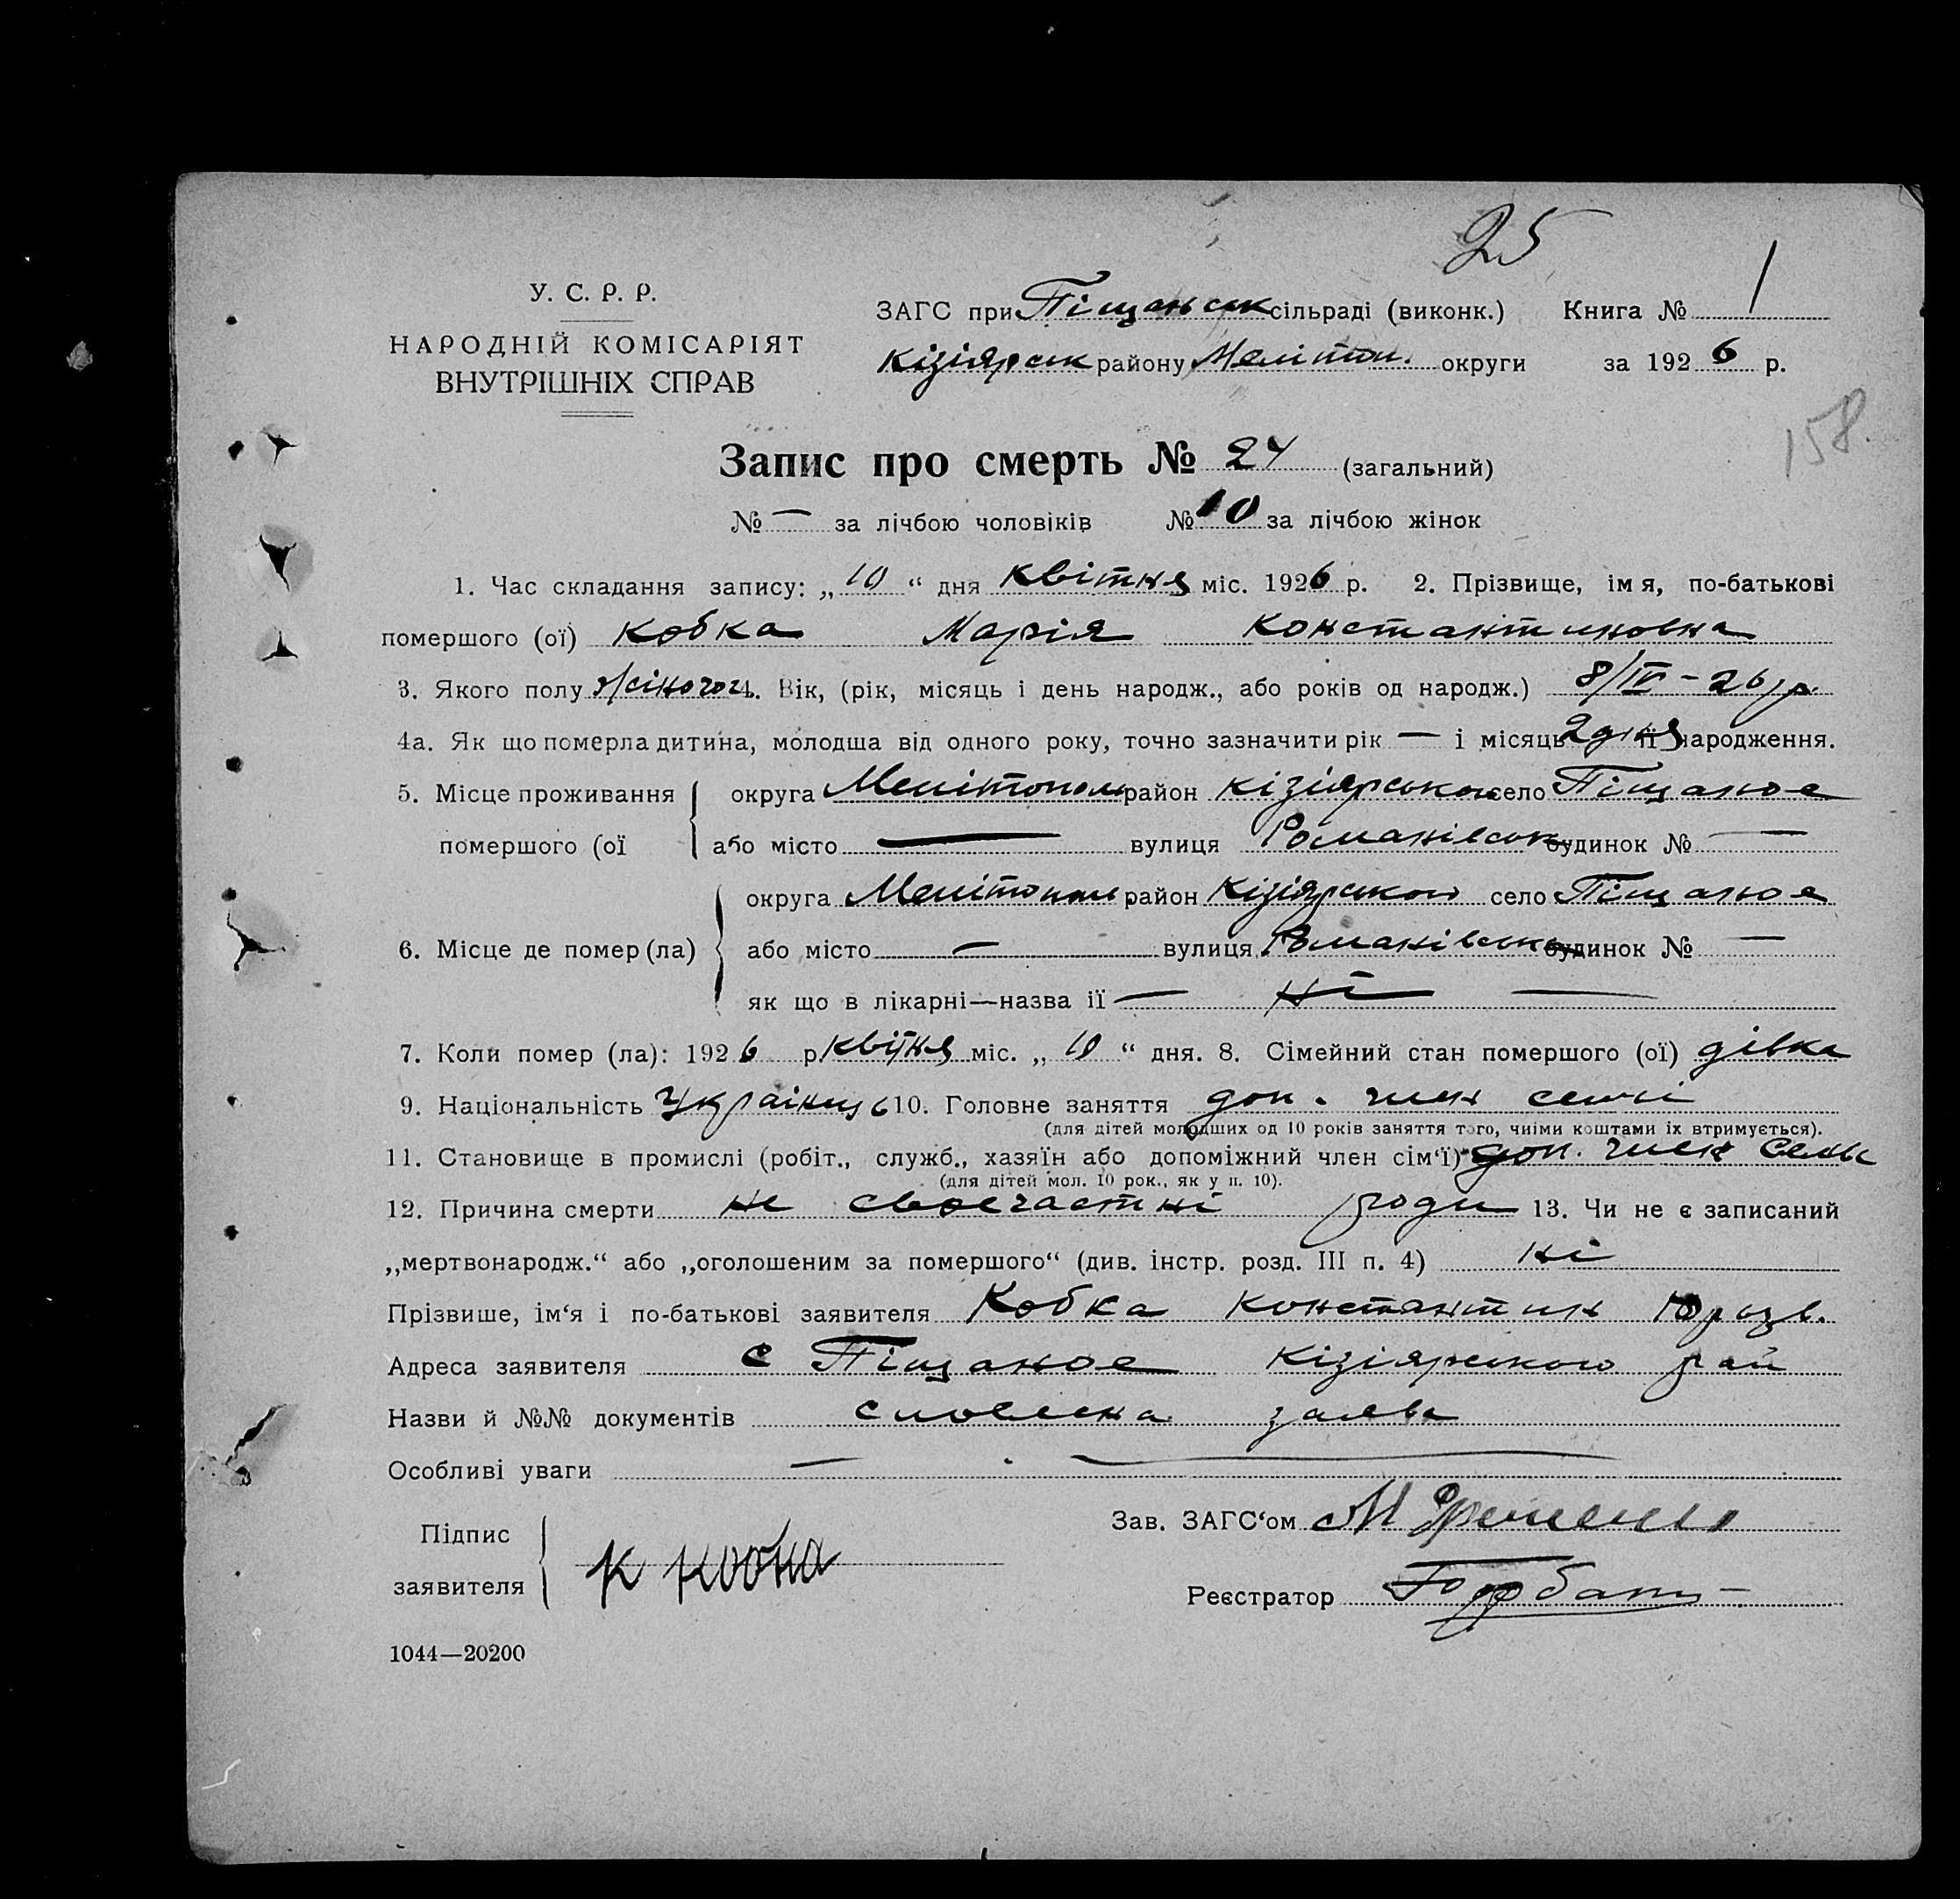 25
У. С. Р. Р.
НАРОДНІЙ КОМІСАРІЯТ
ВНУТРІШНІХ СПРАВ
ЗАГС при Піщанськ сільраді (виконк.) Книга № 1
Кізіярськ району Мелітоп. округи за 1926 р.
158.
Запис про смерть № 24 (загальний)
№ — за лічбою чоловіків № 10 за лічбою жінок
1. Час складання запису: „ 10 “ дня Квітня міс. 1926 р. 2. Прізвище, імя, по-батькові
помершого (ої) Кобка Марія Константиновна
3. Якого полу жіночого 4. Вік, (рік, місяць і день народж., або років од народж.) 8/IV – 26 р.
4а. Як що померла дитина, молодша від одного року, точно зазначити рік — і місяць 2 дня її народження.
5. Місце проживання округа Мелітополь район Кізіярського село Піщаное
помершого (ої або місто — вулиця Романівськ будинок № —
округа Мелітополь район Кізіярського село Піщаное
6. Місце де помер (ла) або місто — вулиця Романівська будинок № —
як що в лікарні—назва її — ні —
7. Коли помер (ла): 1926 р Квітня міс. „ 10 “ дня. 8. Сімейний стан помершого (ої) дівка
9. Національність Українц 10. Головне заняття доп. член семі
(для дітей молодших од 10 років заняття того, чиіми коштами іх втримується).
11. Становище в промислі (робіт., служб., хазяїн або допоміжний член сім‘ї) доп. член
(для дітей мол. 10 рок., як у п. 10).
12. Причина смерти не своечастні роди 13. Чи не є записаний
„мертвонародж.“ або „оголошеним за помершого“ (див. інстр. розд. III п. 4) ні
Прізвише, ім‘я і по-батькові заявителя Кобка Константин
Адреса заявителя с Піщаное Кізіярського рай
Назви й №№ документів словесна заява
Особливі уваги — —
Підпис
заявителя К Кобка
Зав. ЗАГС‘ом М
Реєстратор
1044—20200